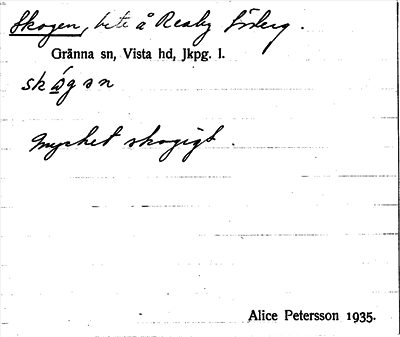 Skogen, bete å Reaby Söderg.
Gränna sn, Vista hd, Jkpg. l.
skógən
Mycket skogigt.
Alice Petersson 1935.